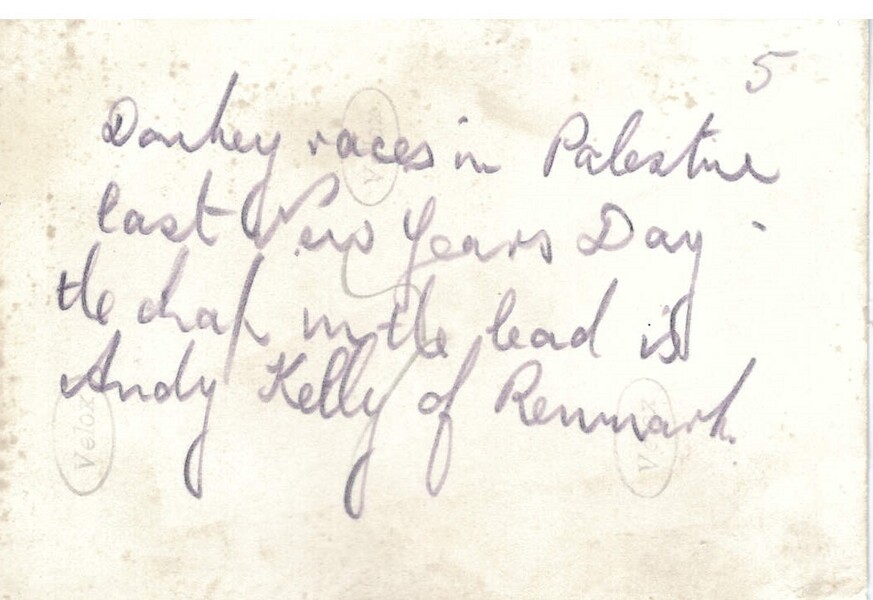 5
Donkey races in Palestine
last New Years Day -
the chap in the lead is
Andy Kelly of Renmark.
Velox
Velox
Velox